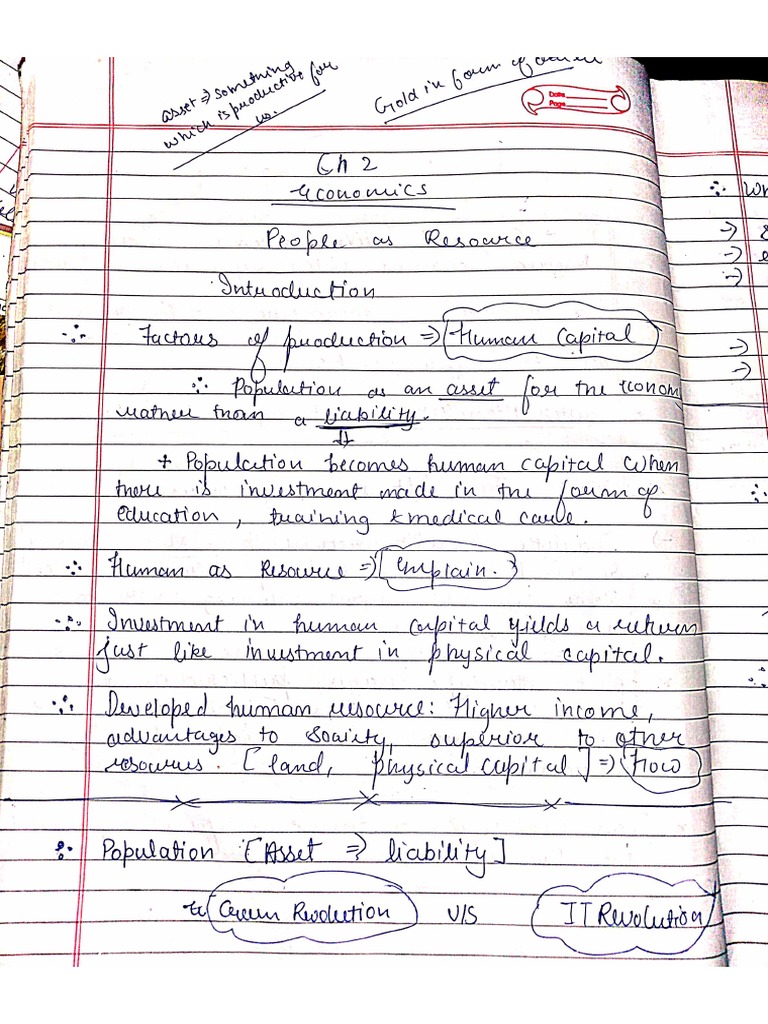 asset => something
which is productive for
us.
Gold in form of
Date
Page
Ch 2
Economics
People as Resource
Introduction
Factors of production => Human Capital
Population as an asset for the Econom
rather than a liability.
+ Population becomes human capital when
there is investment made in the form of
education, training & medical care.
Human as Resource => Explain.
Investment in human capital yields a return
just like investment in physical capital.
Developed human resource: Higher income,
advantages to Society, superior to other
resources. [land, physical capital] => How
Population [Asset => liability]
Green Revolution V/S IT Revolution